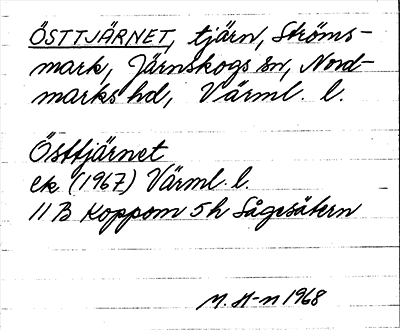 ÖSTTJÄRNET, tjärn, Ströms-
mark, Järnskogs sn, Nord-
marks hd, Värml. l.
Östtjärnet
ek (1967) Värml. l.
11 B Koppom 5h Sågesätern
M. H-n 1968